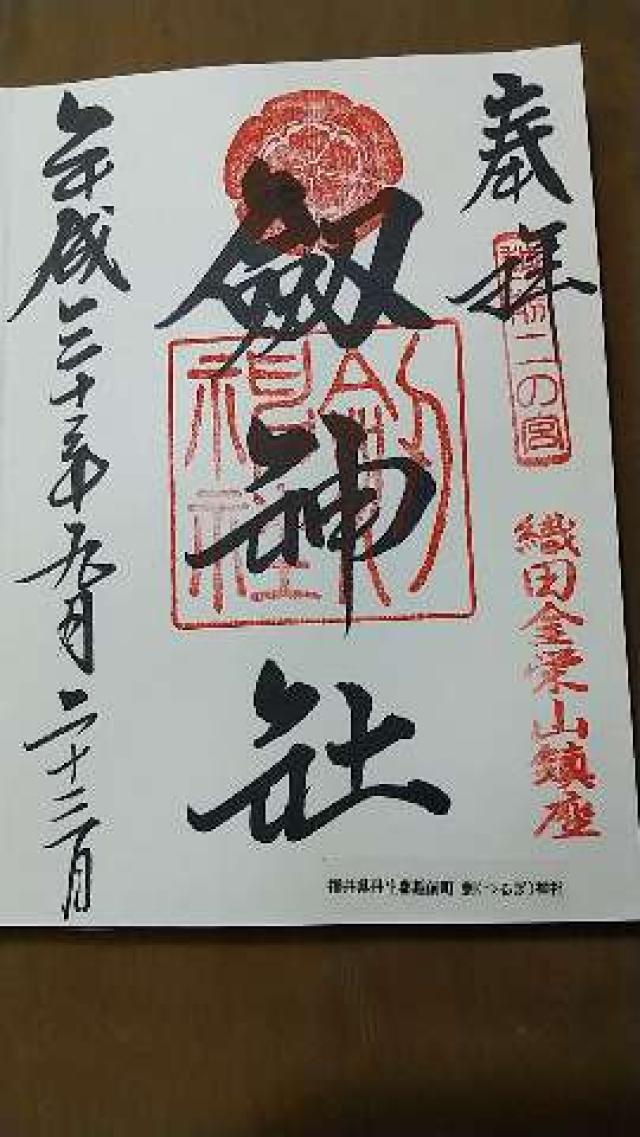 奉拝
越前二の宮
織田金栄山鎮座
劔神社
劔神社
平成三十年九月二十三日
福井県丹生郡越前町 劔(つるぎ)神社